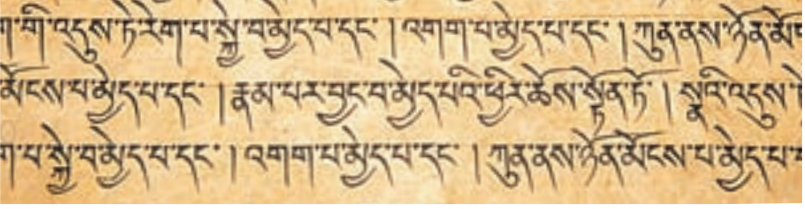 ག་གི་འདུས་ཏེ་རེག་པ་སྐྱེ་བ་མྱེད་པ་དང་ ། འགག་པ་མྱེད་པ་དང་ ། ཀུན་ནས་ཉོན་མོ
མོངས་པ་མྱེད་པ་དང་ ། རྣམ་པར་བྱང་བ་མྱེད་པའི་ཕྱིར་ཆོས་སྟོན་ཏོ ། སྣའི་འདུས་ཏེ
ག་པ་སྐྱེ་བ་མྱེད་པ་དང་ ། འགག་པ་མྱེད་པ་དང་ ། ཀུན་ནས་ཉོན་མོངས་པ་མྱེད་པ་